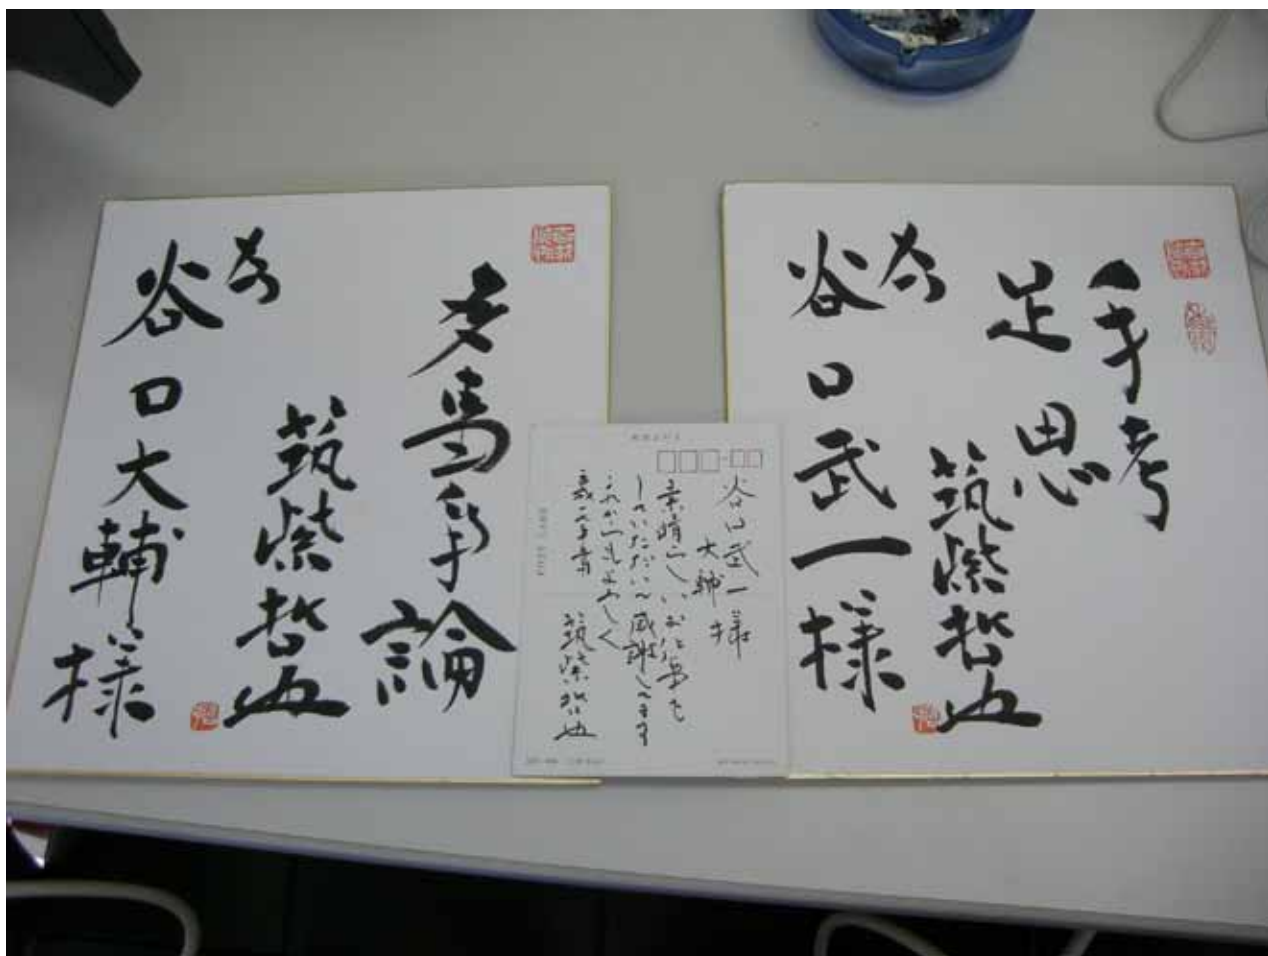 手考
足思
筑紫哲也
為
谷口武一様
郵便はがき
谷口武一様
大輔様
素晴らしいお仕事を
していただいて感謝します
これからもよろしく
筑紫哲也
多事争論
筑紫哲也
為
谷口大輔様